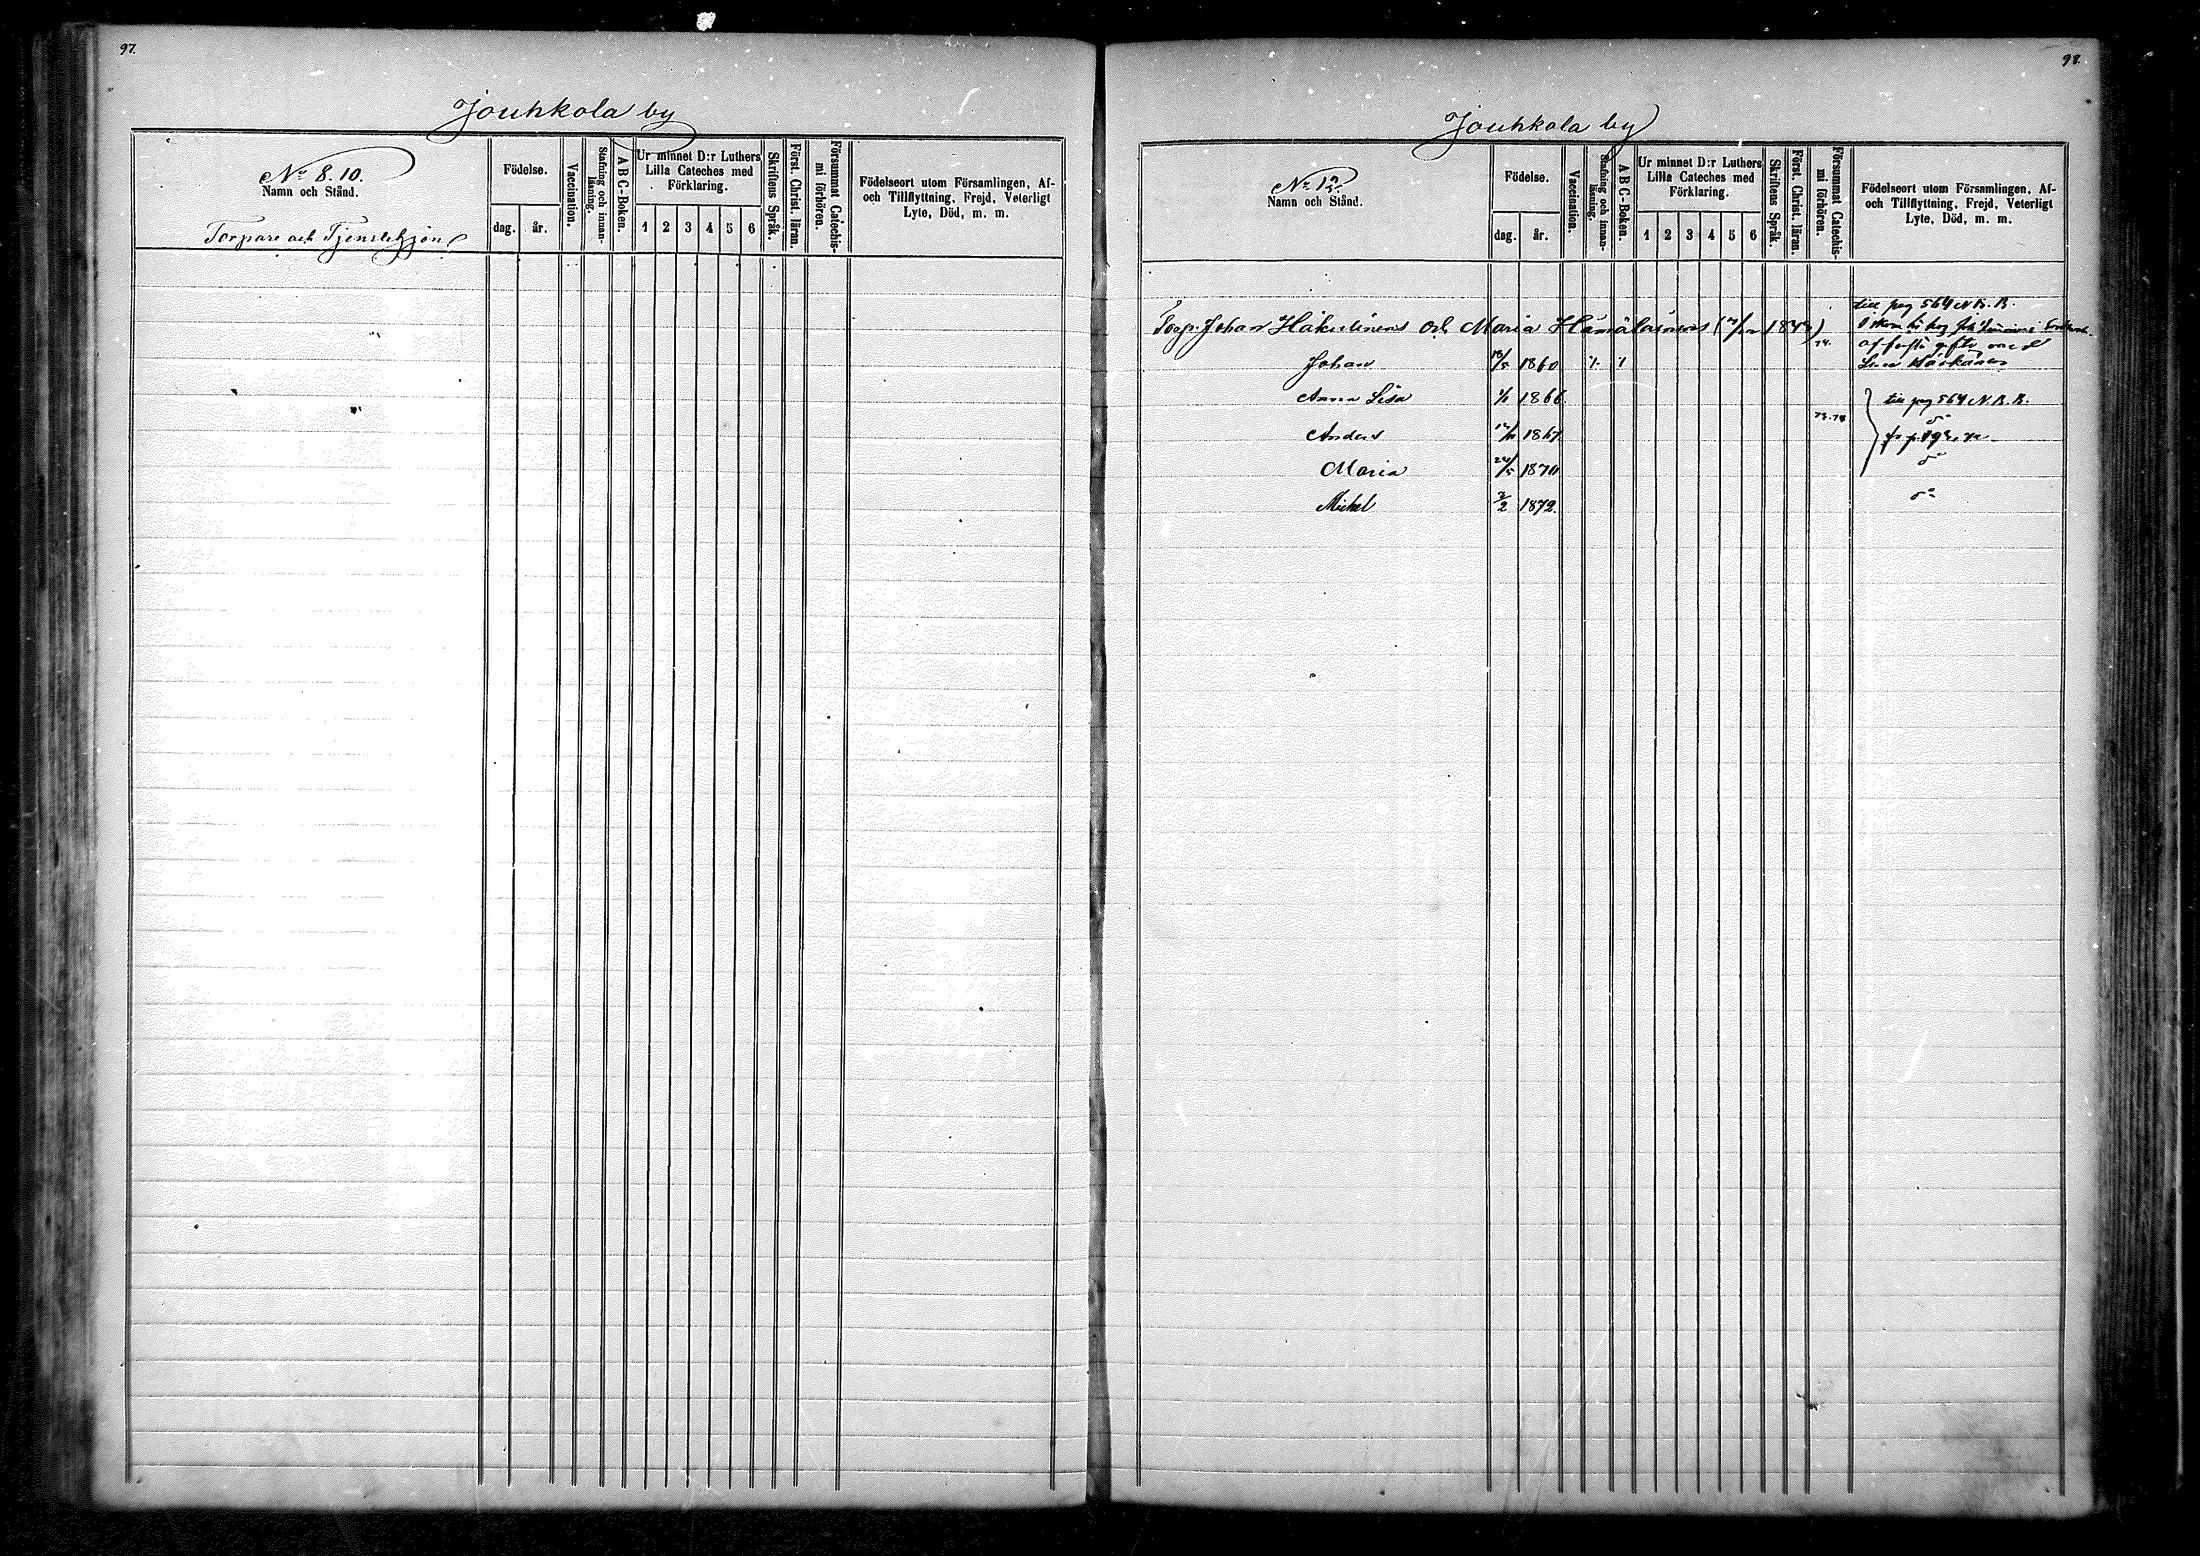 97.
Jouhkola by
No 8. 10.
Namn och Stånd.
Torpare och Tjenstehjon
Födelse.
dag. år.
Vaccination.
Stafning och innan-
läsning.
A B C-Boken.
Ur minnet D:r Luthers
Lilla Cateches med
Förklaring.
1 2 3 4 5 6
Skriftens Språk.
Först. Christ. läran.
Försummat Catechis-
mi förhören.
Födelseort utom Församlingen, Af-
och Tillflyttning, Frejd, Veterligt
Lyte, Död, m. m.
98.
Jouhkola by
No 12.
Namn och Stånd.
Födelse.
dag. år.
Vaccination.
Stafning och innan-
läsning.
A B C-Boken.
Ur minnet D:r Luthers
Lilla Cateches med
Förklaring.
1 2 3 4 5 6
Skriftens Språk.
Först. Christ. läran.
Försummat Catechis-
mi förhören.
Födelseort utom Församlingen, Af-
och Tillflyttning, Frejd, Veterligt
Lyte, Död, m. m.
till pag 564 N. B.
Torp. Johan Hakulinens och Maria Hämäläinens
af första gifte med
Johan 1860 74.
Anna Lisa 1866 till pag 564 N. B.
Anders 1867 73. 74
Maria 24/5 1870
Mickel 2/2 1872.